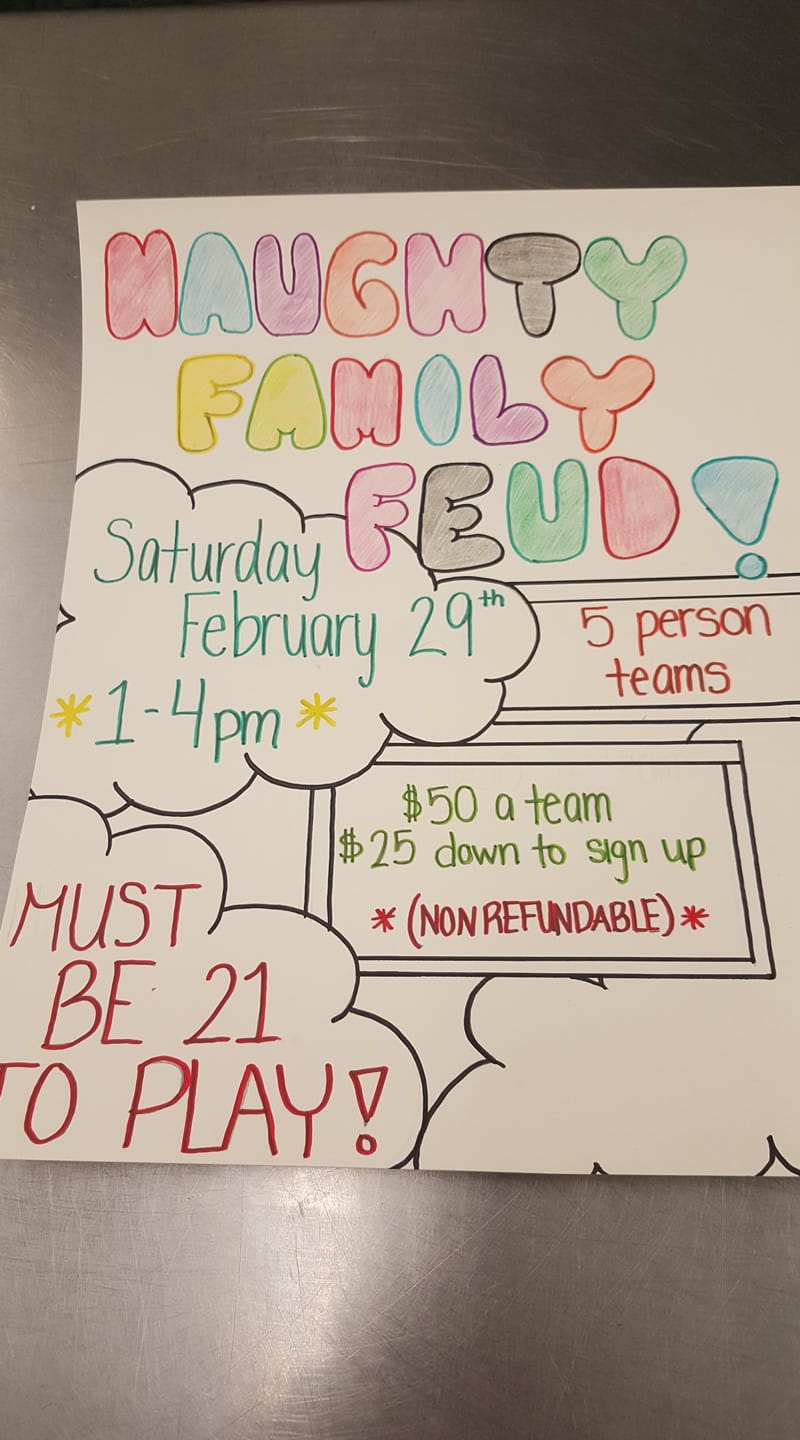 NAUGHTY
FAMILY
FEUD!
Saturday
February 29th
*1-4pm*
5 person
teams
$50 a team
$25 down to sign up
*(NON REFUNDABLE)*
MUST
BE 21
TO PLAY!